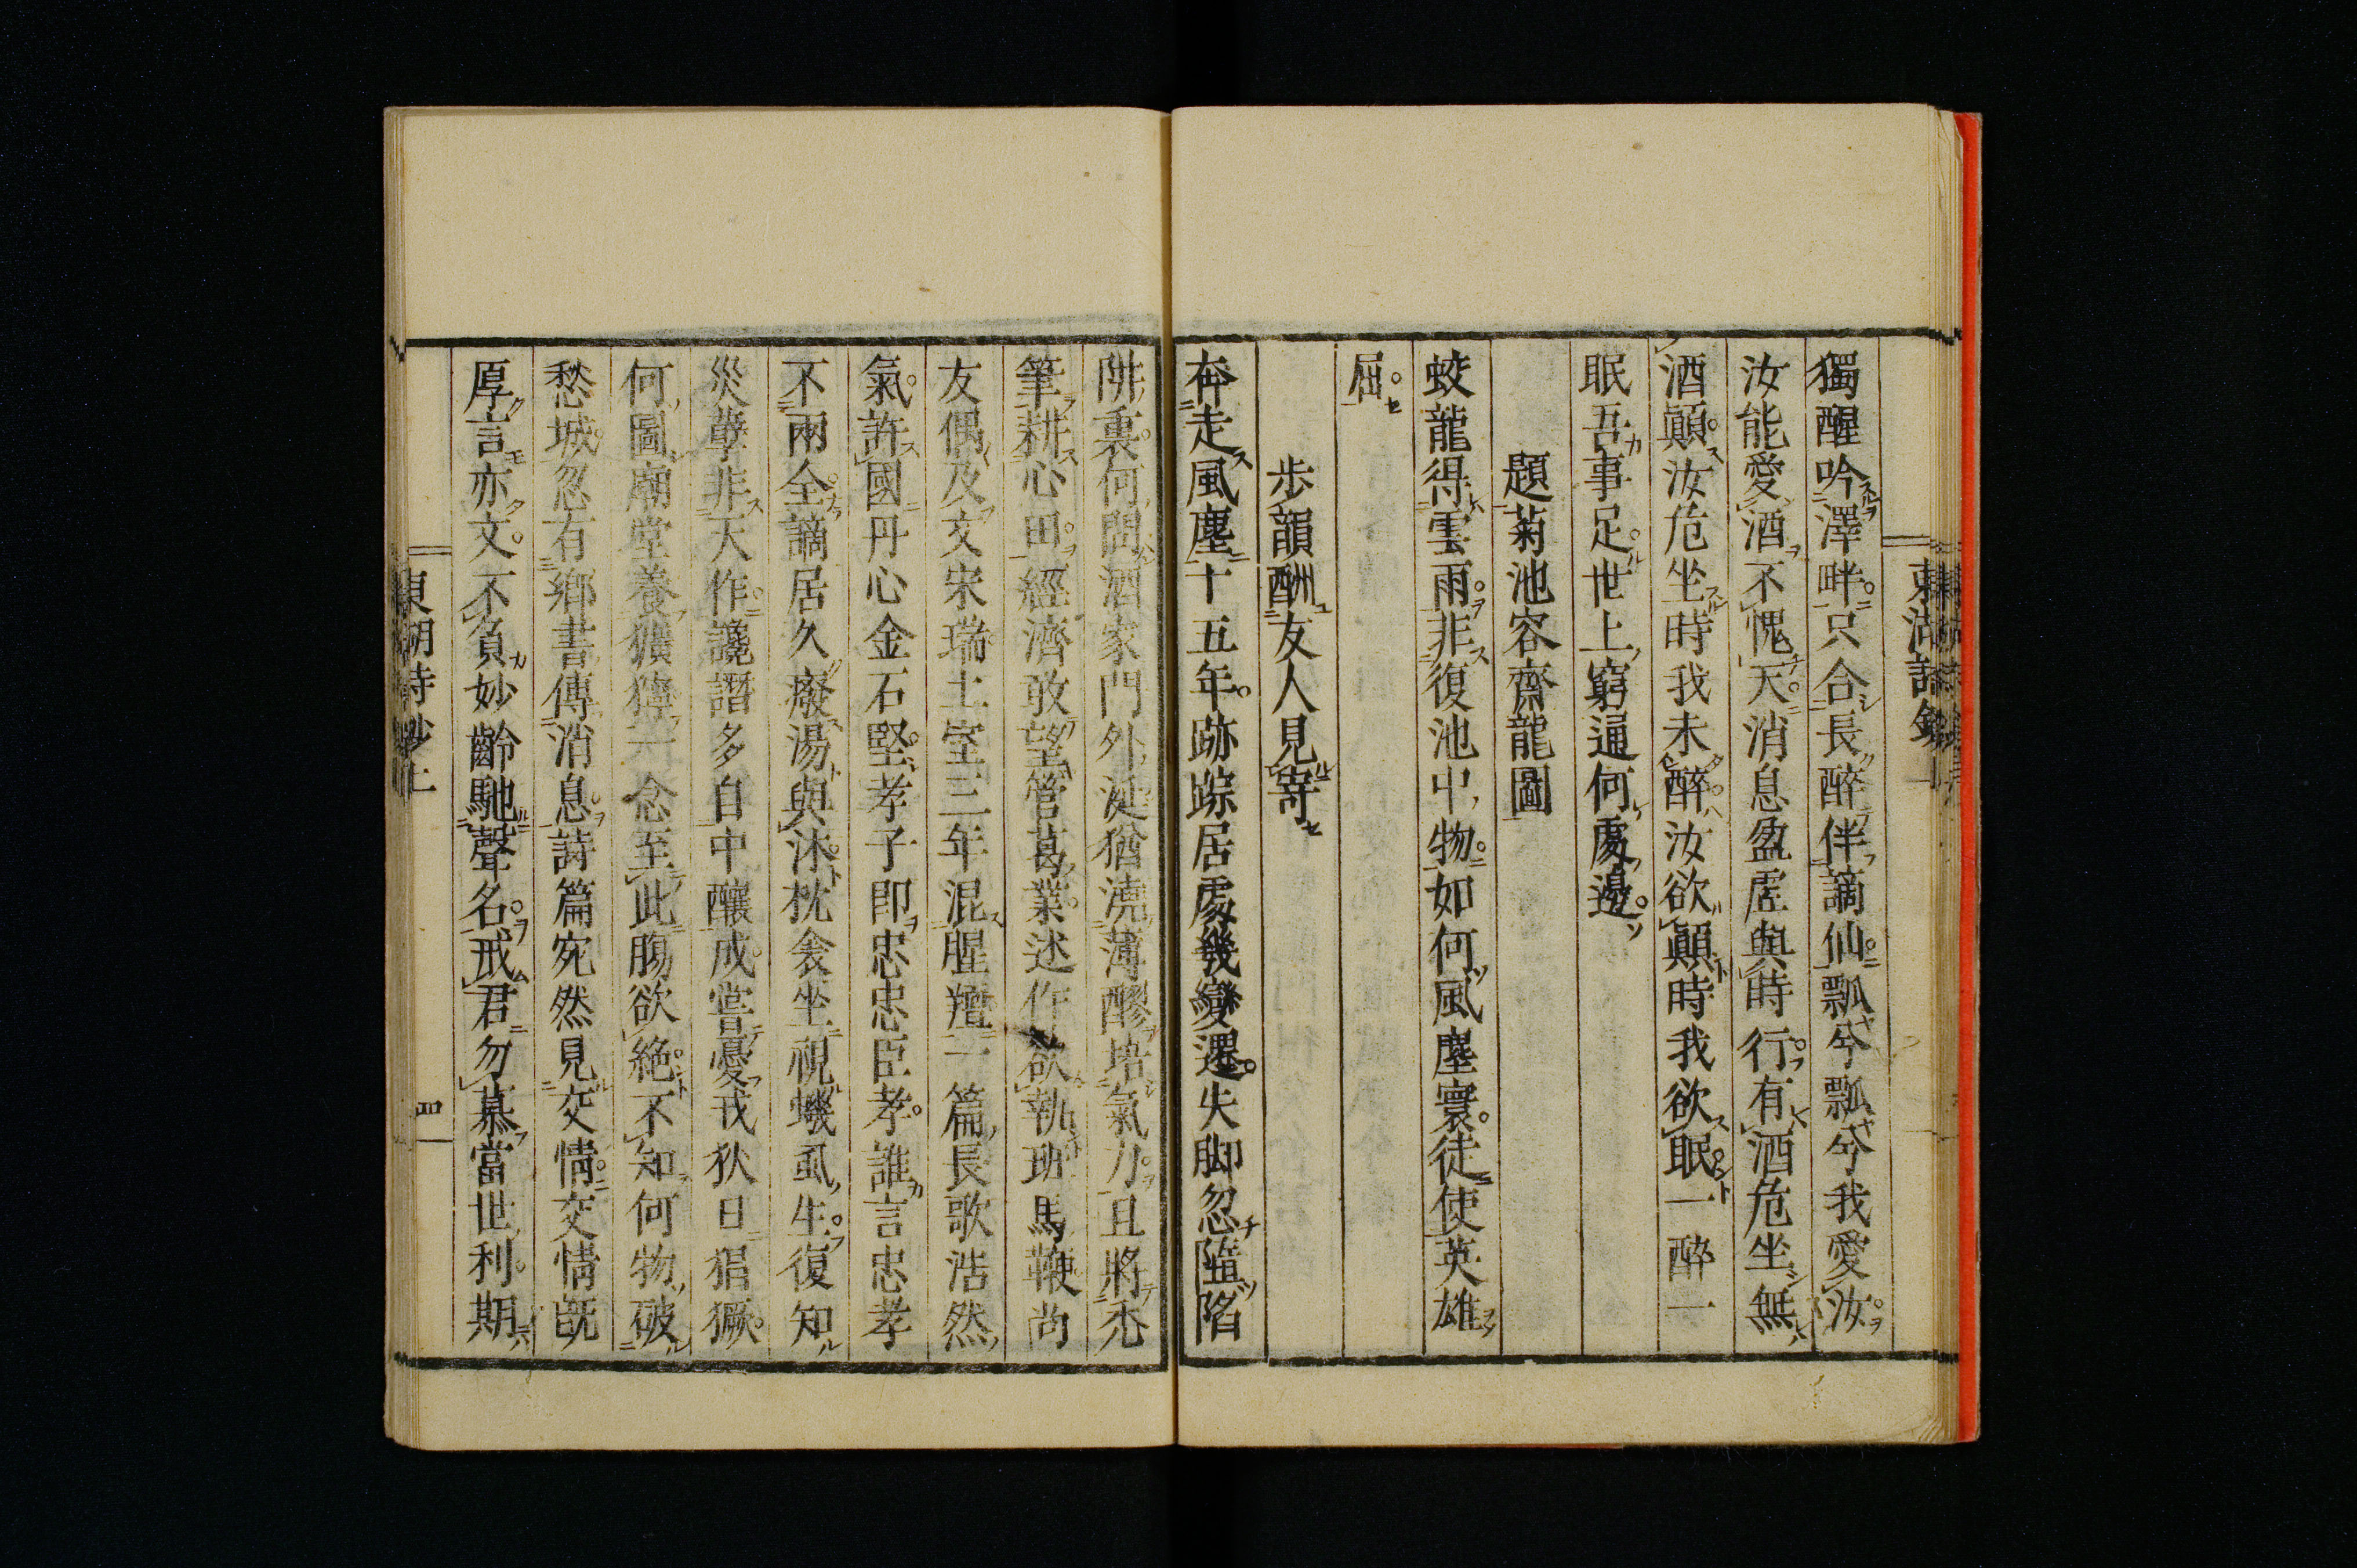 獨醒吟澤畔只合長醉伴謫仙瓢兮瓢兮我愛汝
汝能愛酒不愧天消息盈虛與時行有酒危坐無
酒顛汝危坐時我未醉汝欲顛時我欲眠一醉一
眠吾事足世上窮通何處邊
題菊池容齋龍圖
蛟龍得雲雨非復池中物如何風塵寰徒使英雄
屈
步韻酬友人見寄
奔走風塵十五年跡踪居處幾變遷失脚忽墮陷
阱裏何問酒家門外涎猶澆薄醪培氣力且將禿
筆耕心田經濟敢望管葛業述作欲執班馬鞭尚
友偶及文宋瑞土室三年混腥羶一篇長歌浩然
氣許國丹心金石堅孝子即忠忠臣孝誰言忠孝
不兩全謫居久廢湯與沐枕衾坐視蟣虱生復知
災孽非天作讒譖多自中釀成嘗憂戎狄日猖獗
何圖廟堂養獷獰一念至此腸欲絶不知何物破
愁城忽有鄉書傳消息詩篇宛然見交情交情既
厚言亦文不負妙齡馳聲名戒君勿慕當世利期
東湖詩鈔上
四